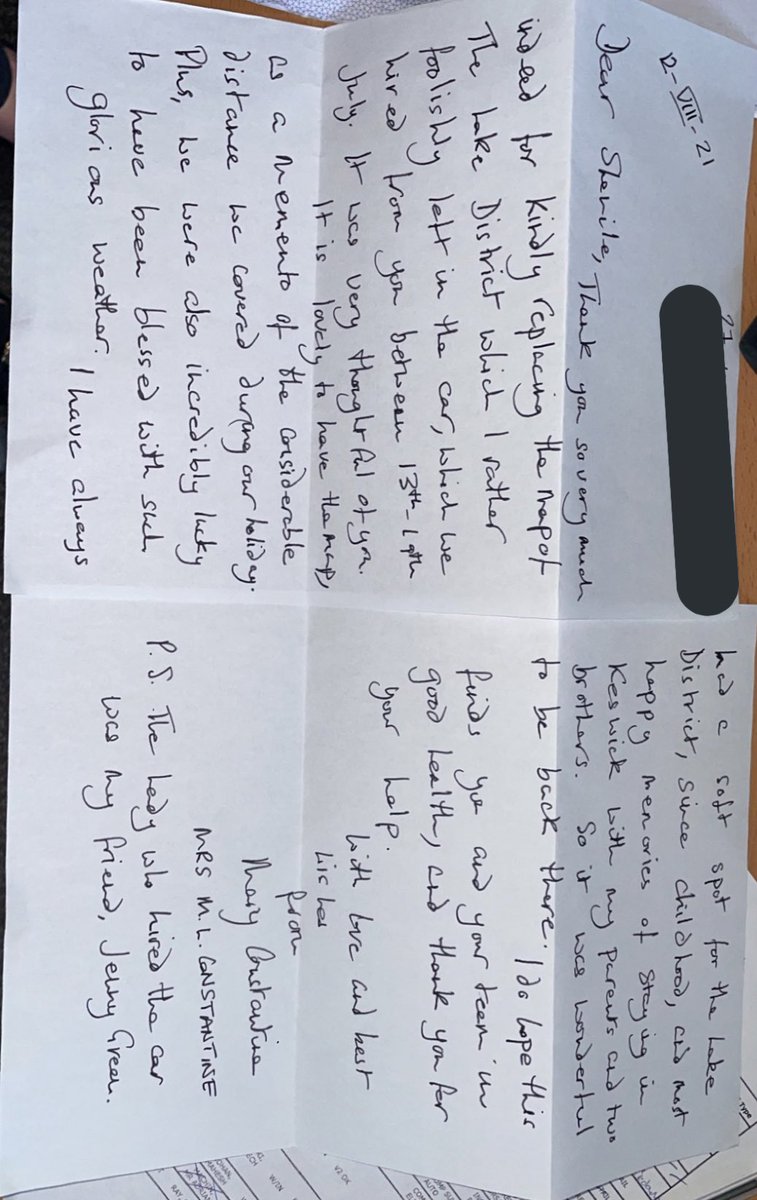 12-VIII-21
27
Dear Shenile, Thank you so very much
indeed for kindly replacing the map of
The Lake District which I rather
foolishly left in the car, which we
hired from you between 13th-19th
July. It was very thoughtful of you.
It is lovely to have the map,
as a memento of the considerable
distance we covered during our holiday.
Plus, we were also incredibly lucky
to have been blessed with such
glorious weather. I have always
had a soft spot for the Lake
District, since childhood, and most
happy memories of staying in
Keswick with my parents and two
brothers. So it was wonderful
to be back there. I do hope this
finds you and your team in
good health, and thank you for
your help.
With love and best
wishes
from
Mary Constantine
MRS M.L. CONSTANTINE
P.S. The lady who hired the car
was my friend, Jenny Green.